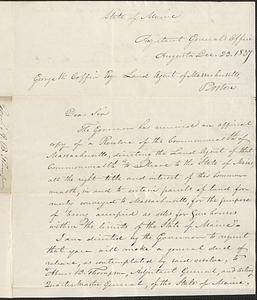 State of Maine
Adjutant General's Office
Augusta Dec. 22. 1837
George W. Coffin Esq. Land Agent of Massachusetts,
Boston
Dear Sir
The Governor has received an official
copy of a Resolve of the Commonwealth of
Massachusetts, directing the Land Agent of that
Commonwealth to release to the State of Maine
all the right and interest of this Common
wealth, in and to certain parcels of land for-
merly conveyed to Massachusetts for the purpose
of being occupied as sites for Gun houses
within the limits of the State of Maine.
I am directed by the Governor to request
that you will make a general deed of
release, as contemplated by said resolve, to
Thompson, Adjutant General, and acting
Quarter Master General, of the State of Maine,